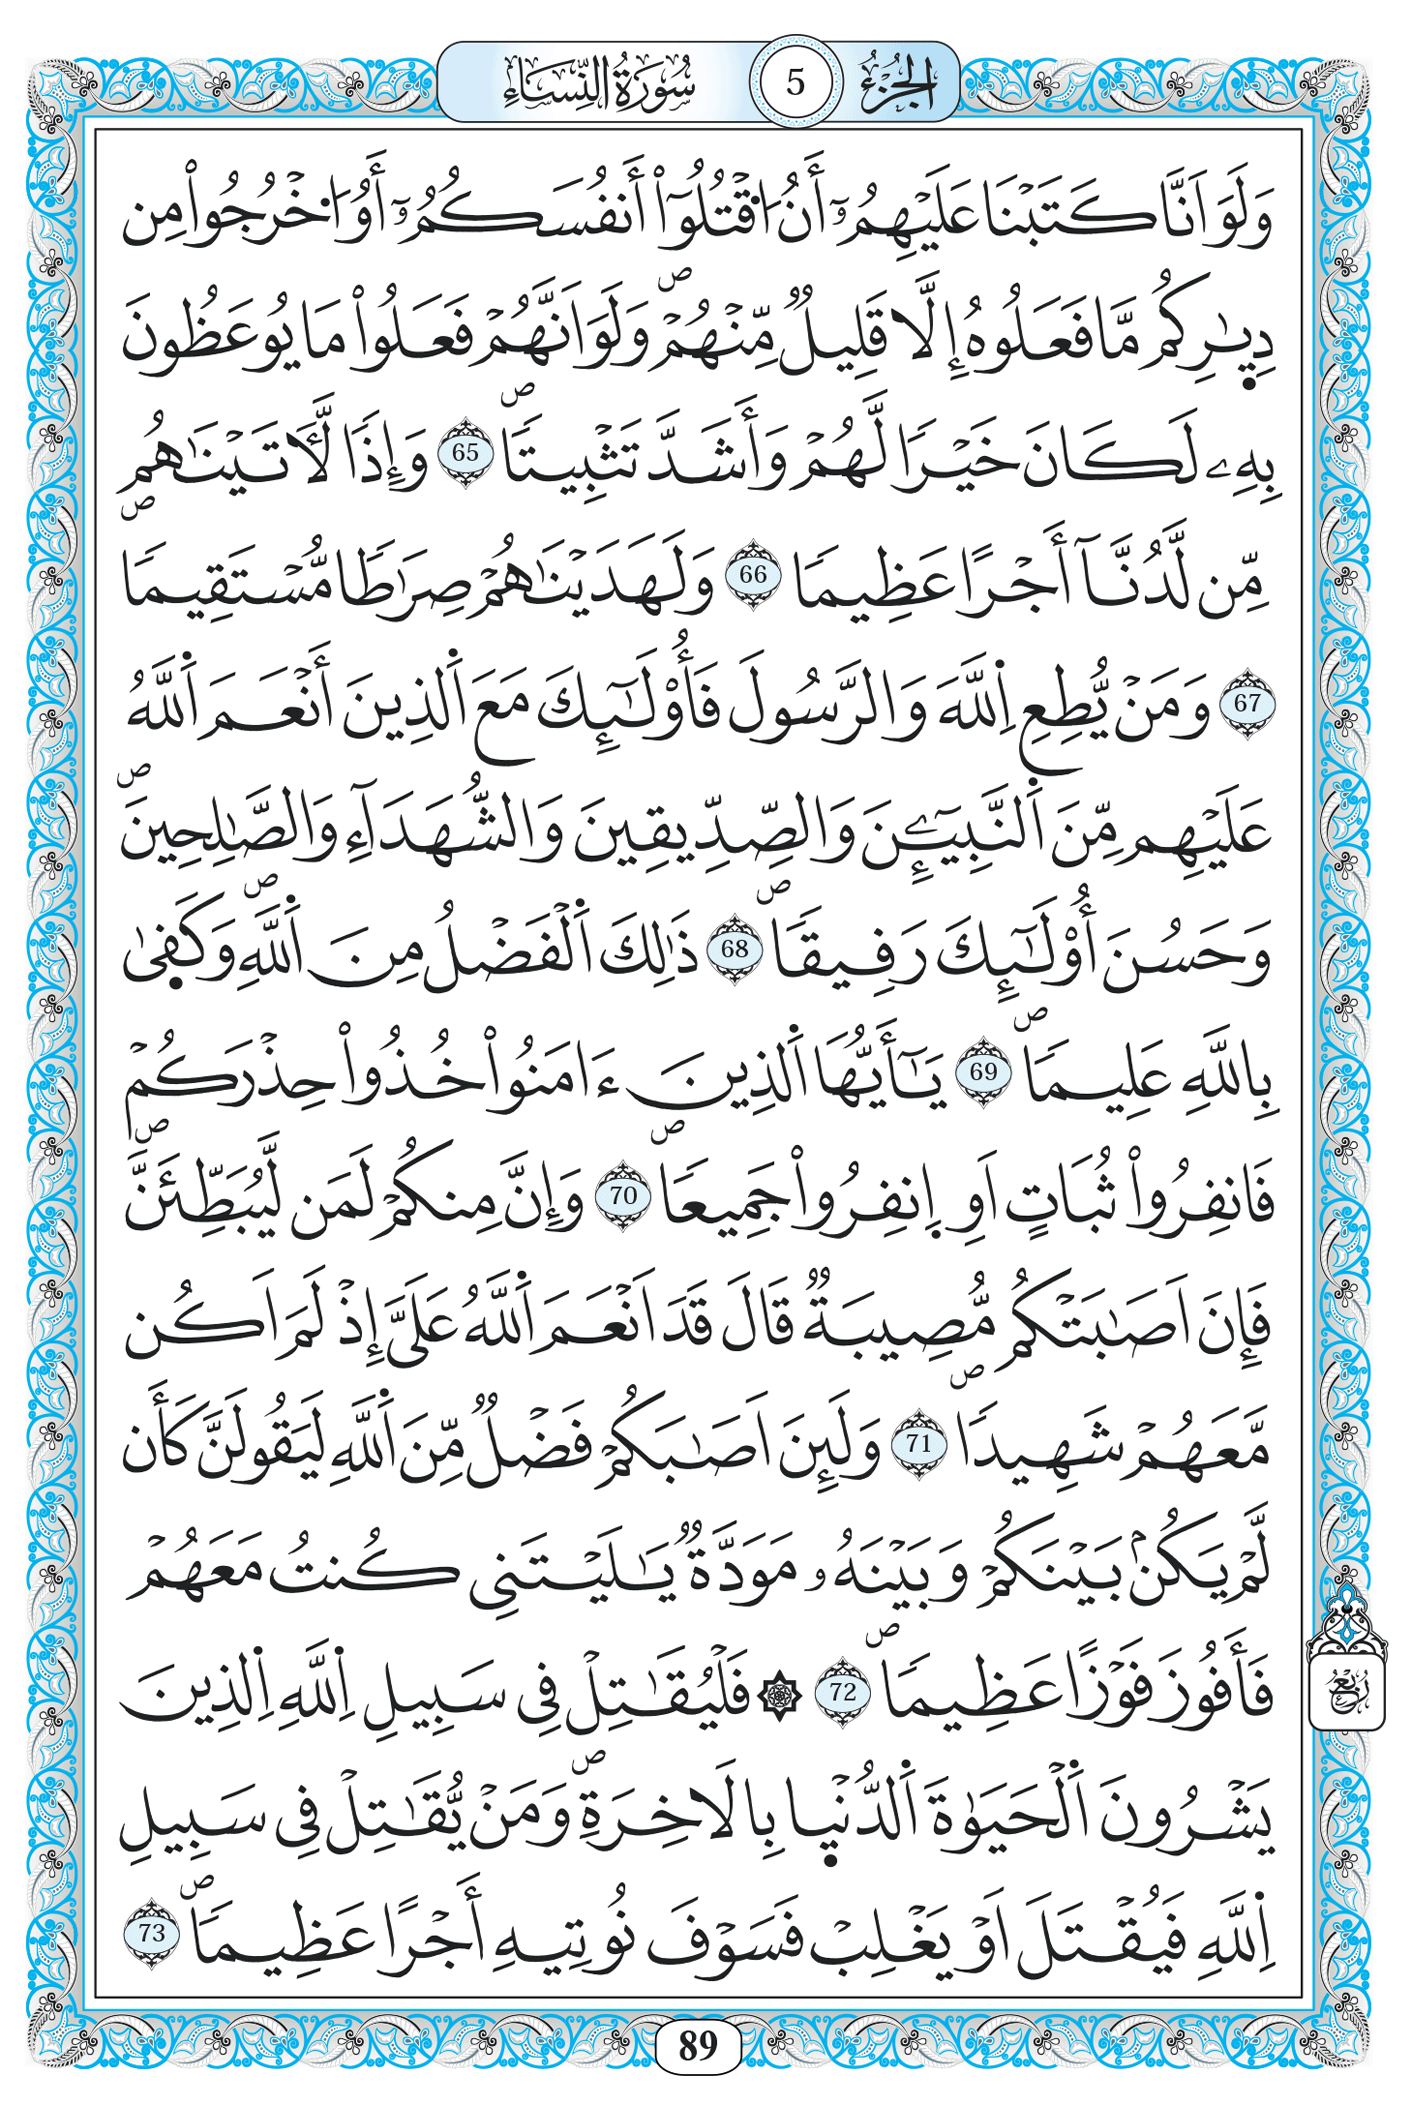 الجزء 5 سورة النساء
وَلَوَ اَنَّا كَتَبْنَا عَلَيْهِمُۥٓ أَنُ اُ۟قْتُلُوٓاْ أَنفُسَكُمُۥٓ أَوُ اُ۟خْرُجُواْ مِن
دِيٰ۪رِكُم مَّا فَعَلُوهُ إِلَّا قَلِيلٌ مِّنْهُمْۖ وَلَوَ اَنَّهُمْ فَعَلُواْ مَا يُوعَظُونَ
بِهِۦ لَكَانَ خَيْراٗ لَّهُمْ وَأَشَدَّ تَثْبِيتاٗۖ 65 وَإِذاٗ لَّأٓتَيْنَٰهُم
مِّن لَّدُنَّآ أَجْراً عَظِيماٗ 66 وَلَهَدَيْنَٰهُمْ صِرَٰطاٗ مُّسْتَقِيماٗۖ
67 وَمَنْ يُّطِعِ اِ۬للَّهَ وَالرَّسُولَ فَأُوْلَٰٓئِكَ مَعَ اَ۬لذِينَ أَنْعَمَ اَ۬للَّهُ
عَلَيْهِم مِّنَ اَ۬لنَّبِيٓـِٕۧنَ وَالصِّدِّيقِينَ وَالشُّهَدَآءِ وَالصَّٰلِحِينَۖ
وَحَسُنَ أُوْلَٰٓئِكَ رَفِيقاٗۖ 68 ذَٰلِكَ اَ۬لْفَضْلُ مِنَ اَ۬للَّهِۖ وَكَف۪ىٰ
بِاللَّهِ عَلِيماٗۖ 69 يَٰٓأَيُّهَا اَ۬لذِينَ ءَامَنُواْ خُذُواْ حِذْرَكُمْ
فَانفِرُواْ ثُبَاتٍ اَوِ اِ۪نفِرُواْ جَمِيعاٗۖ 70 وَإِنَّ مِنكُمْ لَمَن لَّيُبَطِّئَنَّۖ
فَإِنَ اَصَٰبَتْكُم مُّصِيبَةٞ قَالَ قَدَ اَنْعَمَ اَ۬للَّهُ عَلَيَّ إِذْ لَمَ اَكُن
مَّعَهُمْ شَهِيداٗۖ 71 وَلَئِنَ اَصَٰبَكُمْ فَضْلٞ مِّنَ اَ۬للَّهِ لَيَقُولَنَّ كَأَن
لَّمْ يَكُنۢ بَيْنَكُمْ وَبَيْنَهُۥ مَوَدَّةٞ يَٰلَيْتَنِي كُنتُ مَعَهُمْ
فَأَفُوزَ فَوْزاً عَظِيماٗۖ 72 ۞ فَلْيُقَٰتِلْ فِي سَبِيلِ اِ۬للَّهِ اِ۬لذِينَ
رُبُع
يَشْرُونَ اَ۬لْحَيَوٰةَ اَ۬لدُّنْي۪ا بِالَاخِرَةِۖ وَمَنْ يُّقَٰتِلْ فِي سَبِيلِ
اِ۬للَّهِ فَيُقْتَلَ اَوْ يَغْلِبْ فَسَوْفَ نُوتِيهِ أَجْراً عَظِيماٗۖ 73
89